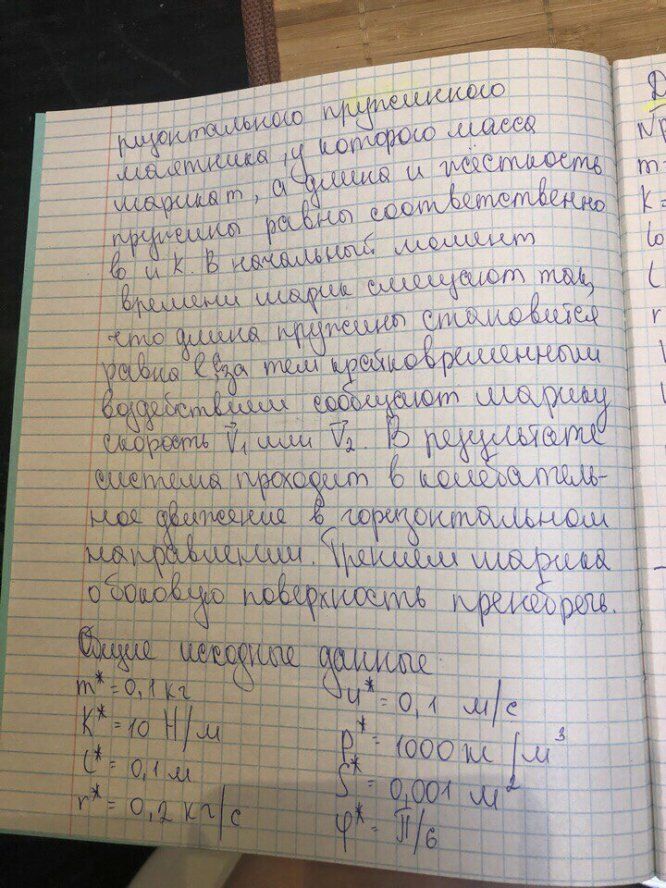 ризонтального пружинного
маятника, у которого масса
шарика m, а длина и жёсткость
пружины равны соответственно
l₀ и K. В начальный момент
времени шарик смещают так,
что длина пружины становится
равна l, за тем кратковременным
воздействием сообщают шарику
скорость V⃗₁ или V⃗₂. В результате
система проходит в колебатель-
ное движение в горизонтальном
направлении. Трением шарика
о боковую поверхность пренебречь.
Общие исходные данные.
m* = 0,1 кг
u* = 0,1 м/с
K* = 10 Н/м
ρ* = 1000 кг/м³
l* = 0,1 м
S* = 0,001 м²
r* = 0,2 кг/с
φ* = π/6
Д
m
K =
l₀
l
r